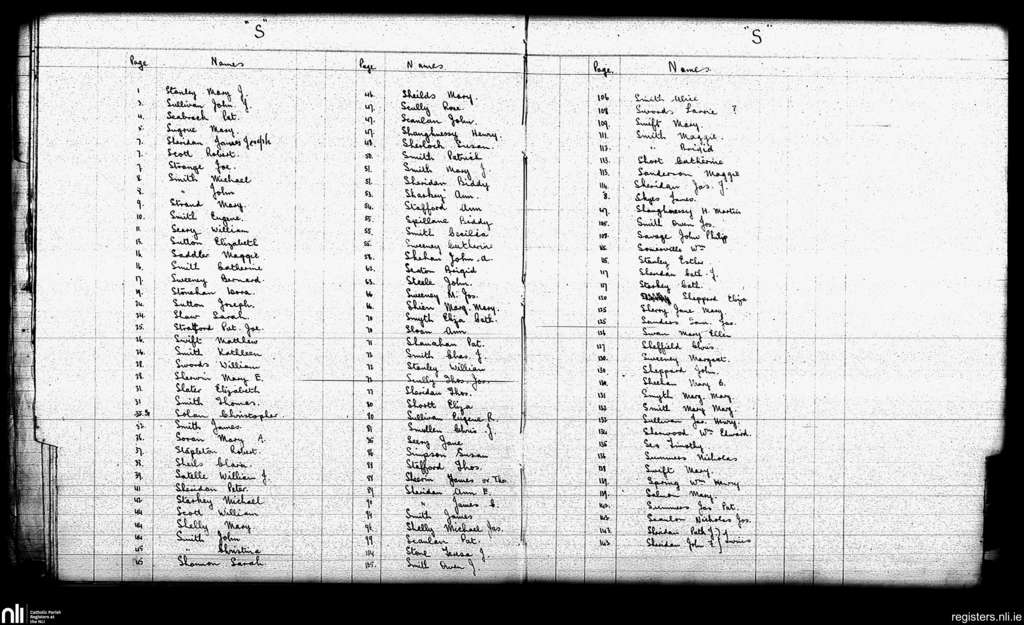 "S"
Page Names
1 Stanley Mary J.
3. Sullivan John J.
4. Seabrack Pat.
5. Sugrue Mary.
7. Sheridan James Joseph
7. Scott Robert.
7. Strange Joe.
8. Smith Michael
8. " John
9. Strand Mary.
10. Smith Eugene.
11. Seery William
13. Sutton Elizabeth
16. Saddler Maggie
16. Smith Catherine
17. Sweeney Bernard.
Stenehan
24. Sutton Joseph.
24. Shaw Sarah
25. Stratford Pat. Joe.
26. Swift Matthew
26. Smith Kathleen
28. Swords William
28. Sherwin Mary E.
31. Slater Elizabeth
31 Smith Thomas.
Christopher
32. Smith James.
36. Mary A.
37. Stapleton Robert.
38. Sheils Clara.
39. Satelle William J.
41 Sheridan Peter.
42. Starkey Michael
44. Scott William
44. Shelly Mary
44. Smith John
45 " Christina
45 Shannon Sarah.
Page Names
46. Sheilds Mary.
47. Scully Rose.
47. Scanlan John.
47. Shaughnessy Henry.
48. Sherlock Susan.
50. Smith Patrick
51. Smith Mary J.
51. Sheridan Biddy
53. Sharkey Ann.
54. Stafford Ann
55. Spillane Biddy
55. Smith Cecilia
55. Sweeney Catherine
58. Shehan John. A.
63. Seaton Brigid
63. Steele John.
66 Sweeney M. Jos.
66. Mary. Mary.
70 Smyth Eliza Cath.
70 Sloan Ann
71 Shanahan Pat.
72 Smith Chas. J.
73 Stanley William
73 Scully Thos. Jos.
77 Sheridan Thos.
80 Shortt Eliza
80 Sullivan Eugene R.
81 Smullen Chris. J.
86 Seery Jane
86 Simpson Susan
88 Stafford Thos.
88 James or Thos.
89 Sheridan Ann E.
" James
Smith James
96 Shelly Michael Jas.
99 Scanlan Pat.
104 Stone Teresa J.
105. Smith Owen J.
"S"
Page. Names.
106 Smith Alice
108 Swords ?
109. Swift Mary.
111. Smith Maggie.
112. " Brigid
113. Short Catherine
113. Sanderson Maggie
114. Sheridan Jas. J.
8. Skyes James.
47. Shaughnessy H. Martin
105. Smith Owen Jos.
107. Savage John Philip
Somerville Wm
Stanley Esther
117 Sheridan Cath. J.
117 Starkey Cath.
120 Sheppard Eliza
125 Sherry Jane Mary
125 Sanders Sam. Jas.
126 Swan Mary Ellen
127 Sheffield Chris.
130. Sweeney Margaret.
130. Sheppard John.
130. Sheehan Mary B.
131 Smyth Mary Mary
132 Smith Mary Mary
132 Sullivan Jas. Henry.
134 Sherwood Wm Edward.
135 Sex Timothy
136 Summers Nicholas
138 Swift Mary.
139. Spring Wm Henry
139. Salmon Mary.
140. Summers Jas Pat.
142. Scanlon Nicholas Jos.
142. Sheridan Path J. } Twins
142 Sheridan John F. }
nli
Catholic Parish
Registers at
the NLI
registers.nli.ie